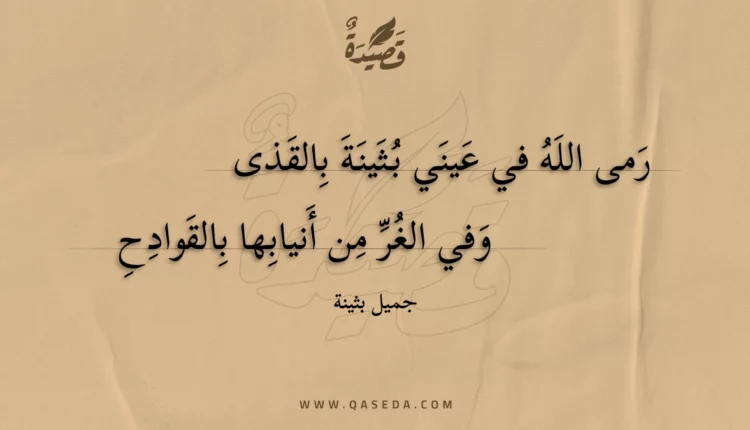 قَصِيدَةٌ
رَمى اللَهُ في عَينَي بُثَينَةَ بِالقَذى
وَفي الغُرِّ مِن أَنيابِها بِالقَوادِحِ
جميل بثينة
WWW.QASEDA.COM